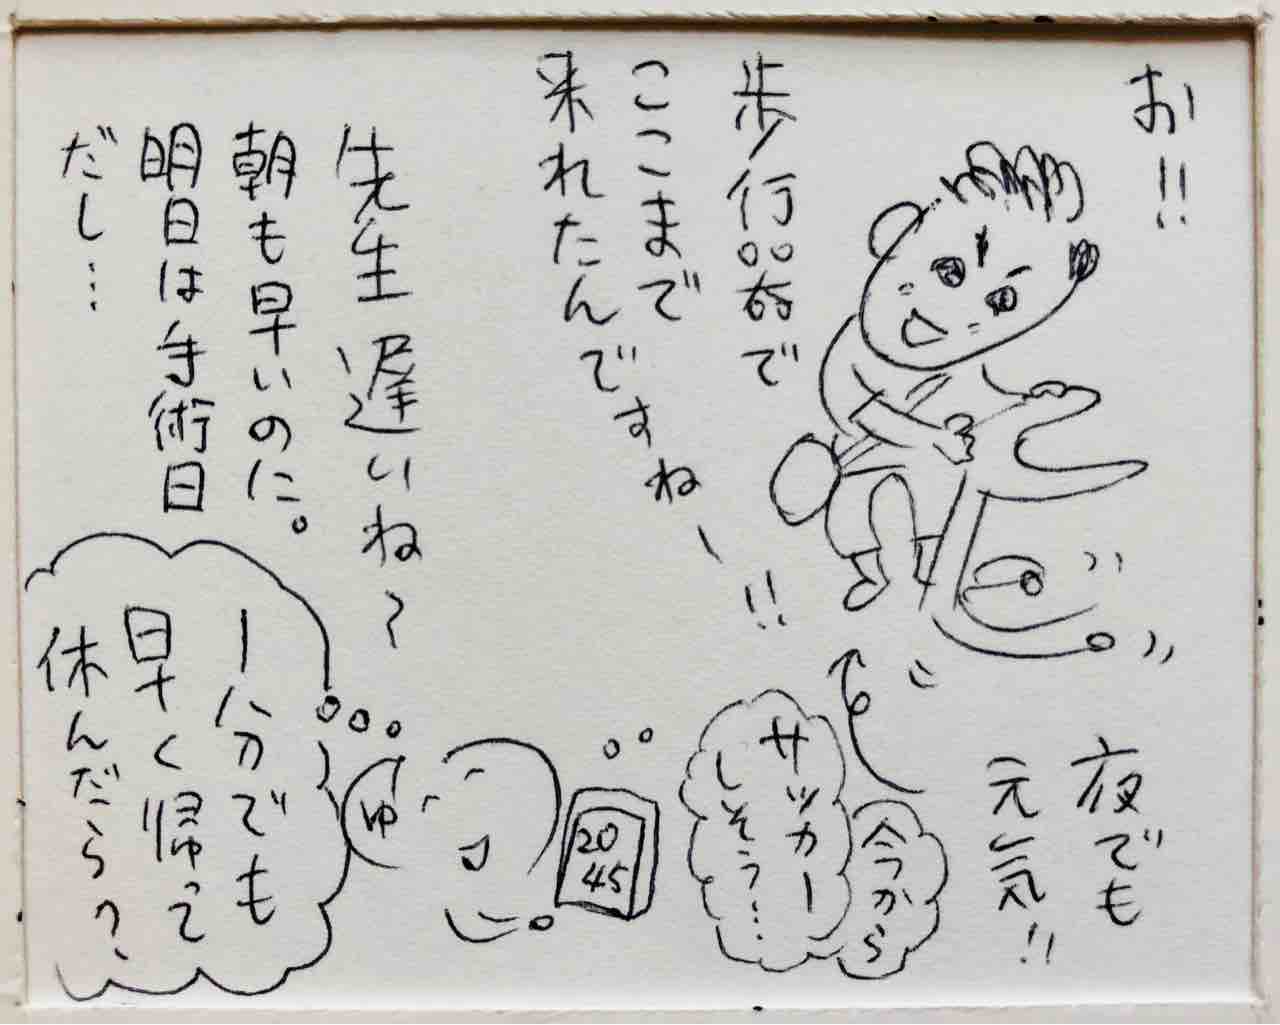 お!!
歩行器で
ここまで
来れたんですねー!!
先生遅いね〜
朝も早いのに。
明日は手術日
だし…
夜でも
元気!!
今から
サッカー
しそう…
20
45
ゆ
1分でも
早く帰って
休んだら?